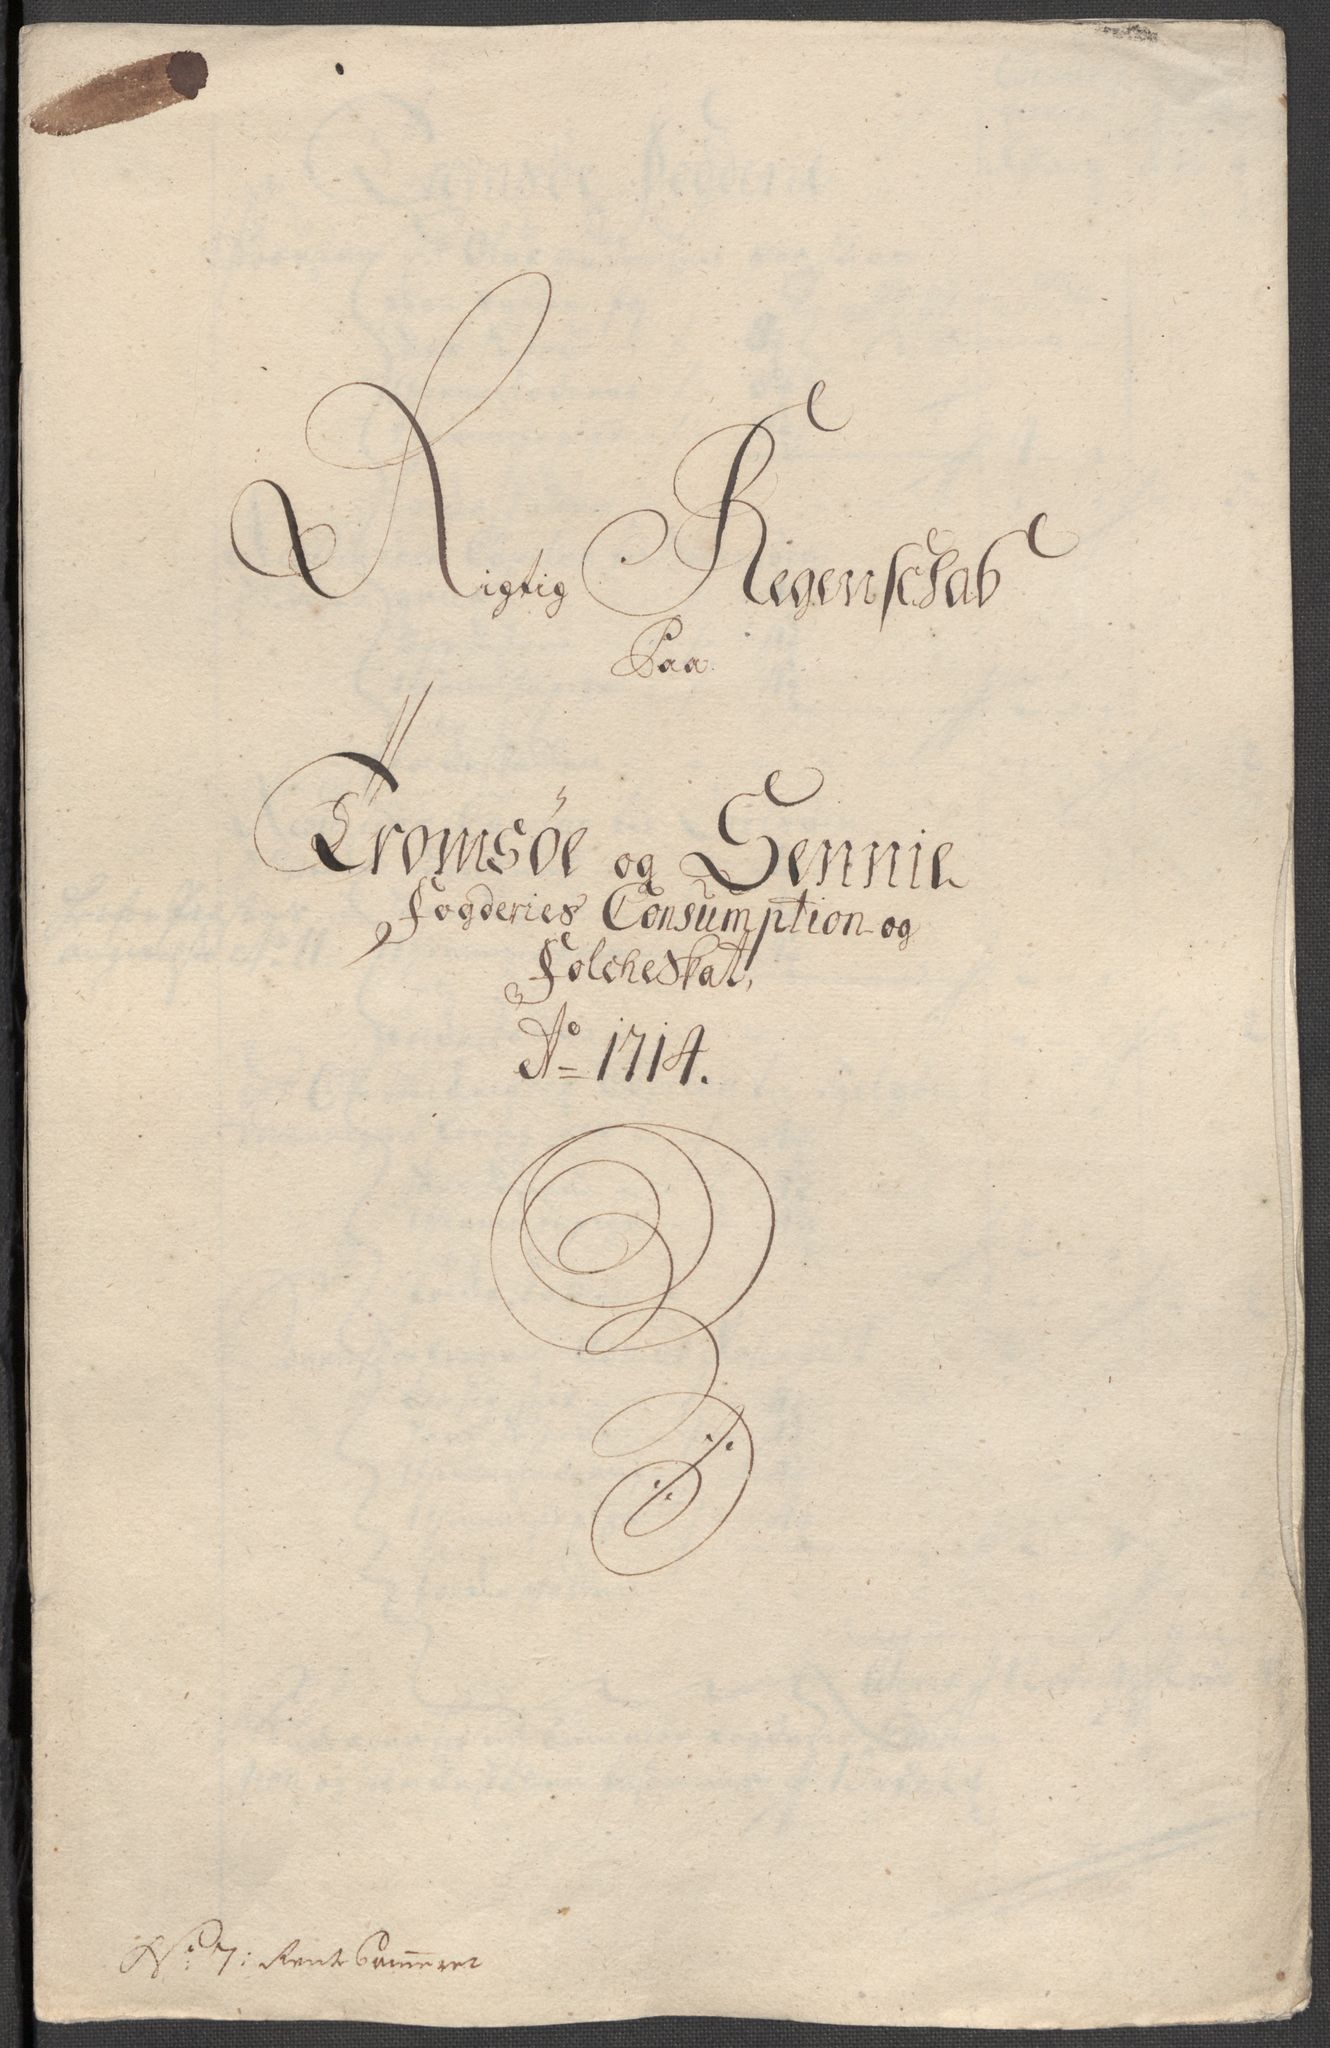 Rigtig Regenschab
Paa
Tromsöe og Sennie
Fogderies Consumption og
Folcheskat,
Ao 1714.
No 7: Rente Cammeret